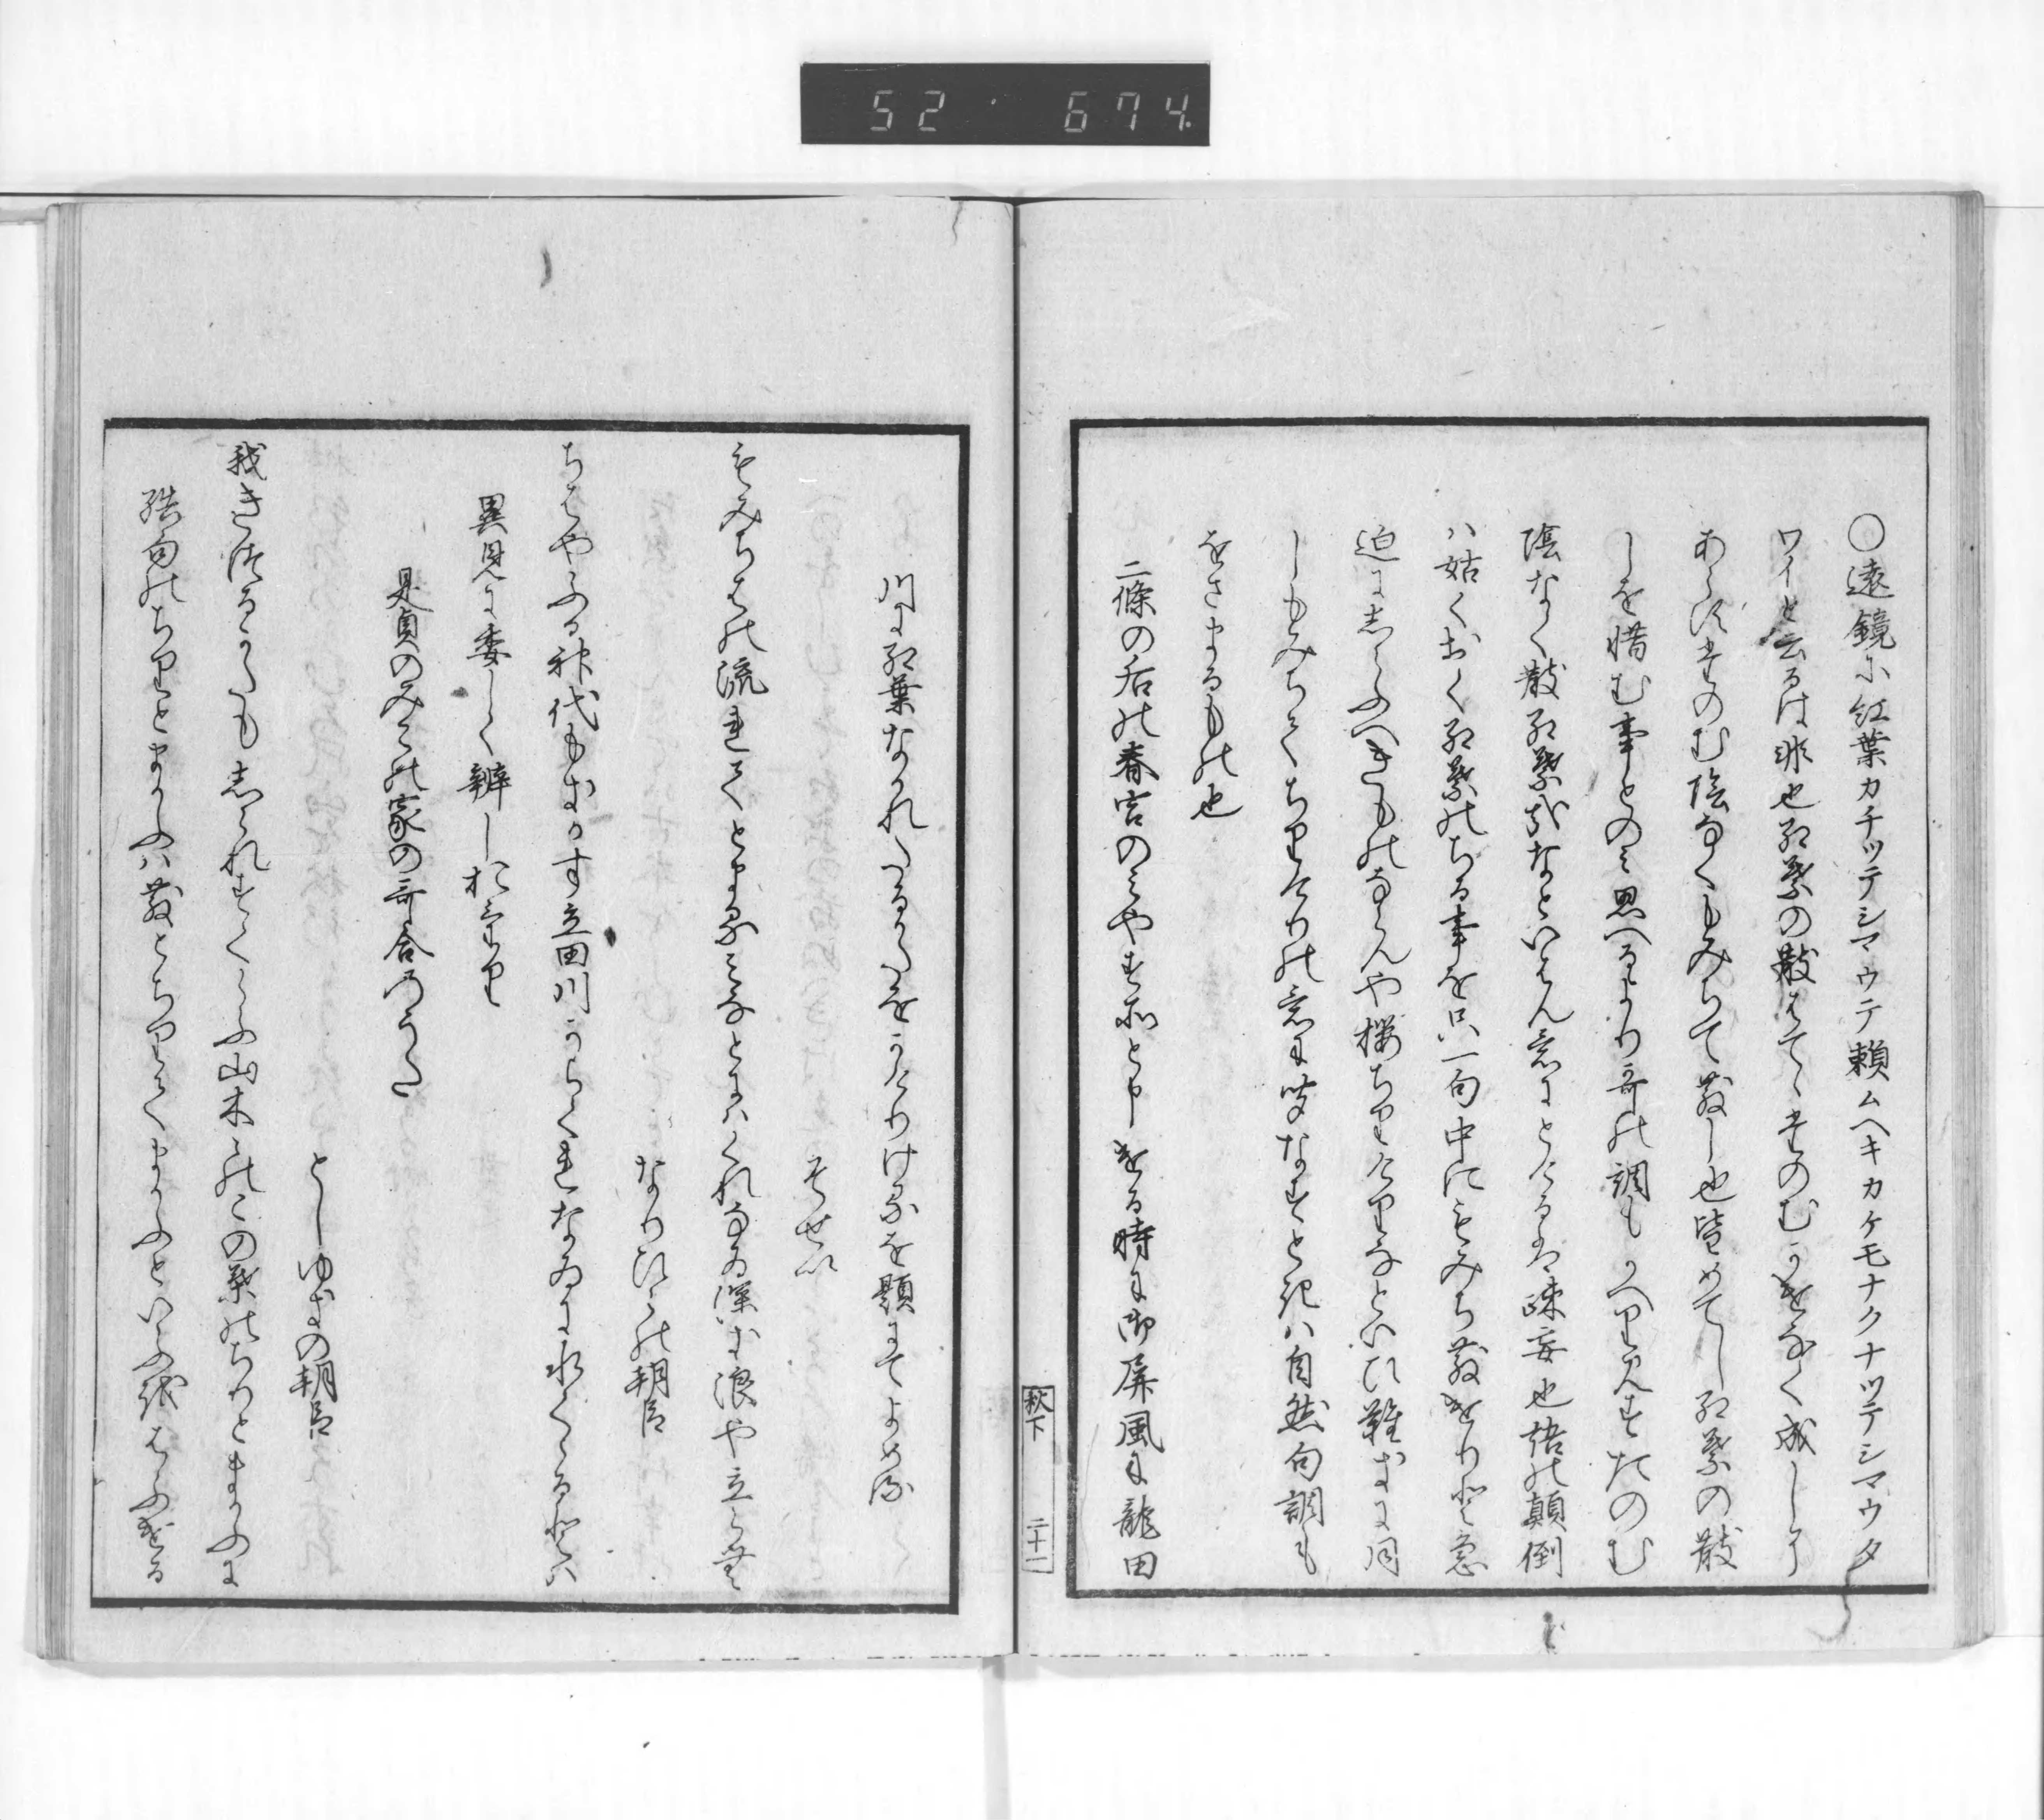 52 674
○遠鏡に紅葉カチツテシマウテ頼ムヘキカケモナクナツテシマウタ
ワイと云るは非也紅葉の散はてゝたのむかけなく成しに
あらすたのむ陰なくもみちて散し也皆めてし紅葉の散
しを惜む事とのみ思へるより哥の調もかへり見すたのむ
陰なく散紅葉哉なといはん意にとれるは疎妄也語の顛倒
ハ姑くおく紅葉のちる事を只一句中にもみち散けりと急
迫にしらふへきものならんや櫻ちりけりなといひ難きに同
しもみちてちりけりの意に聞なすときハ自然句調も
をさまるもの也
二條の后の春宮のみやす所と申ける時に御屏風に龍田
秋下 二十一
川に紅葉なかれたるかたをかけりけるを題にてよめる
そせい
もみちはの流れてとまるみなとにハくれなゐ深き浪や立らむ
なりひらの朝臣
ちはやふる神代もきかす立田川からくれなゐに水くゝるとハ
異見に委しく辨しおけり
是貞のみこの家の哥合のうた
としゆきの朝臣
我きつるかたもしられすくらふ山木々のこの葉のちりとまかふに
結句のちりとまかふハ散とちりてまかふといふ